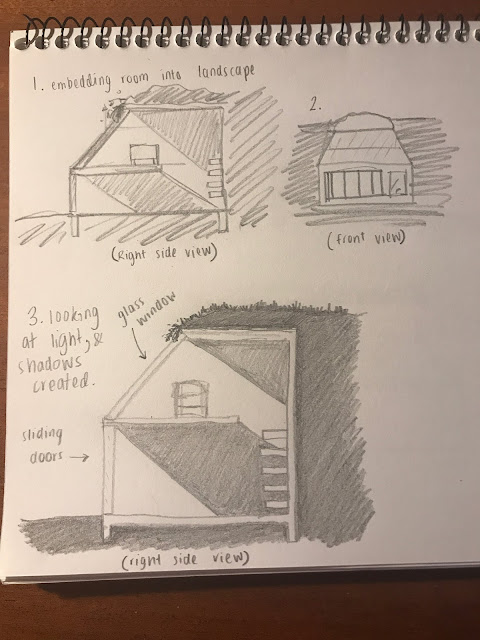 1. embedding room into landscape
2.
(Right side view)
(front view)
3. looking
at light, &
shadows
created.
glass
window
sliding
doors →
(right side view)